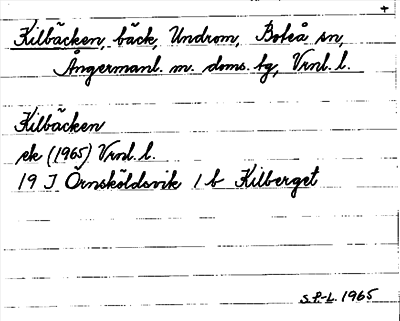 +
Kilbäcken, bäck, Undrom, Boteå sn,
Ångermanl. m. doms. hg, Vrnl. l.
Kilbäcken
ek (1965) Vrnl. l.
19 J Örnsköldsvik 1 b Kilberget
S.P-L. 1965